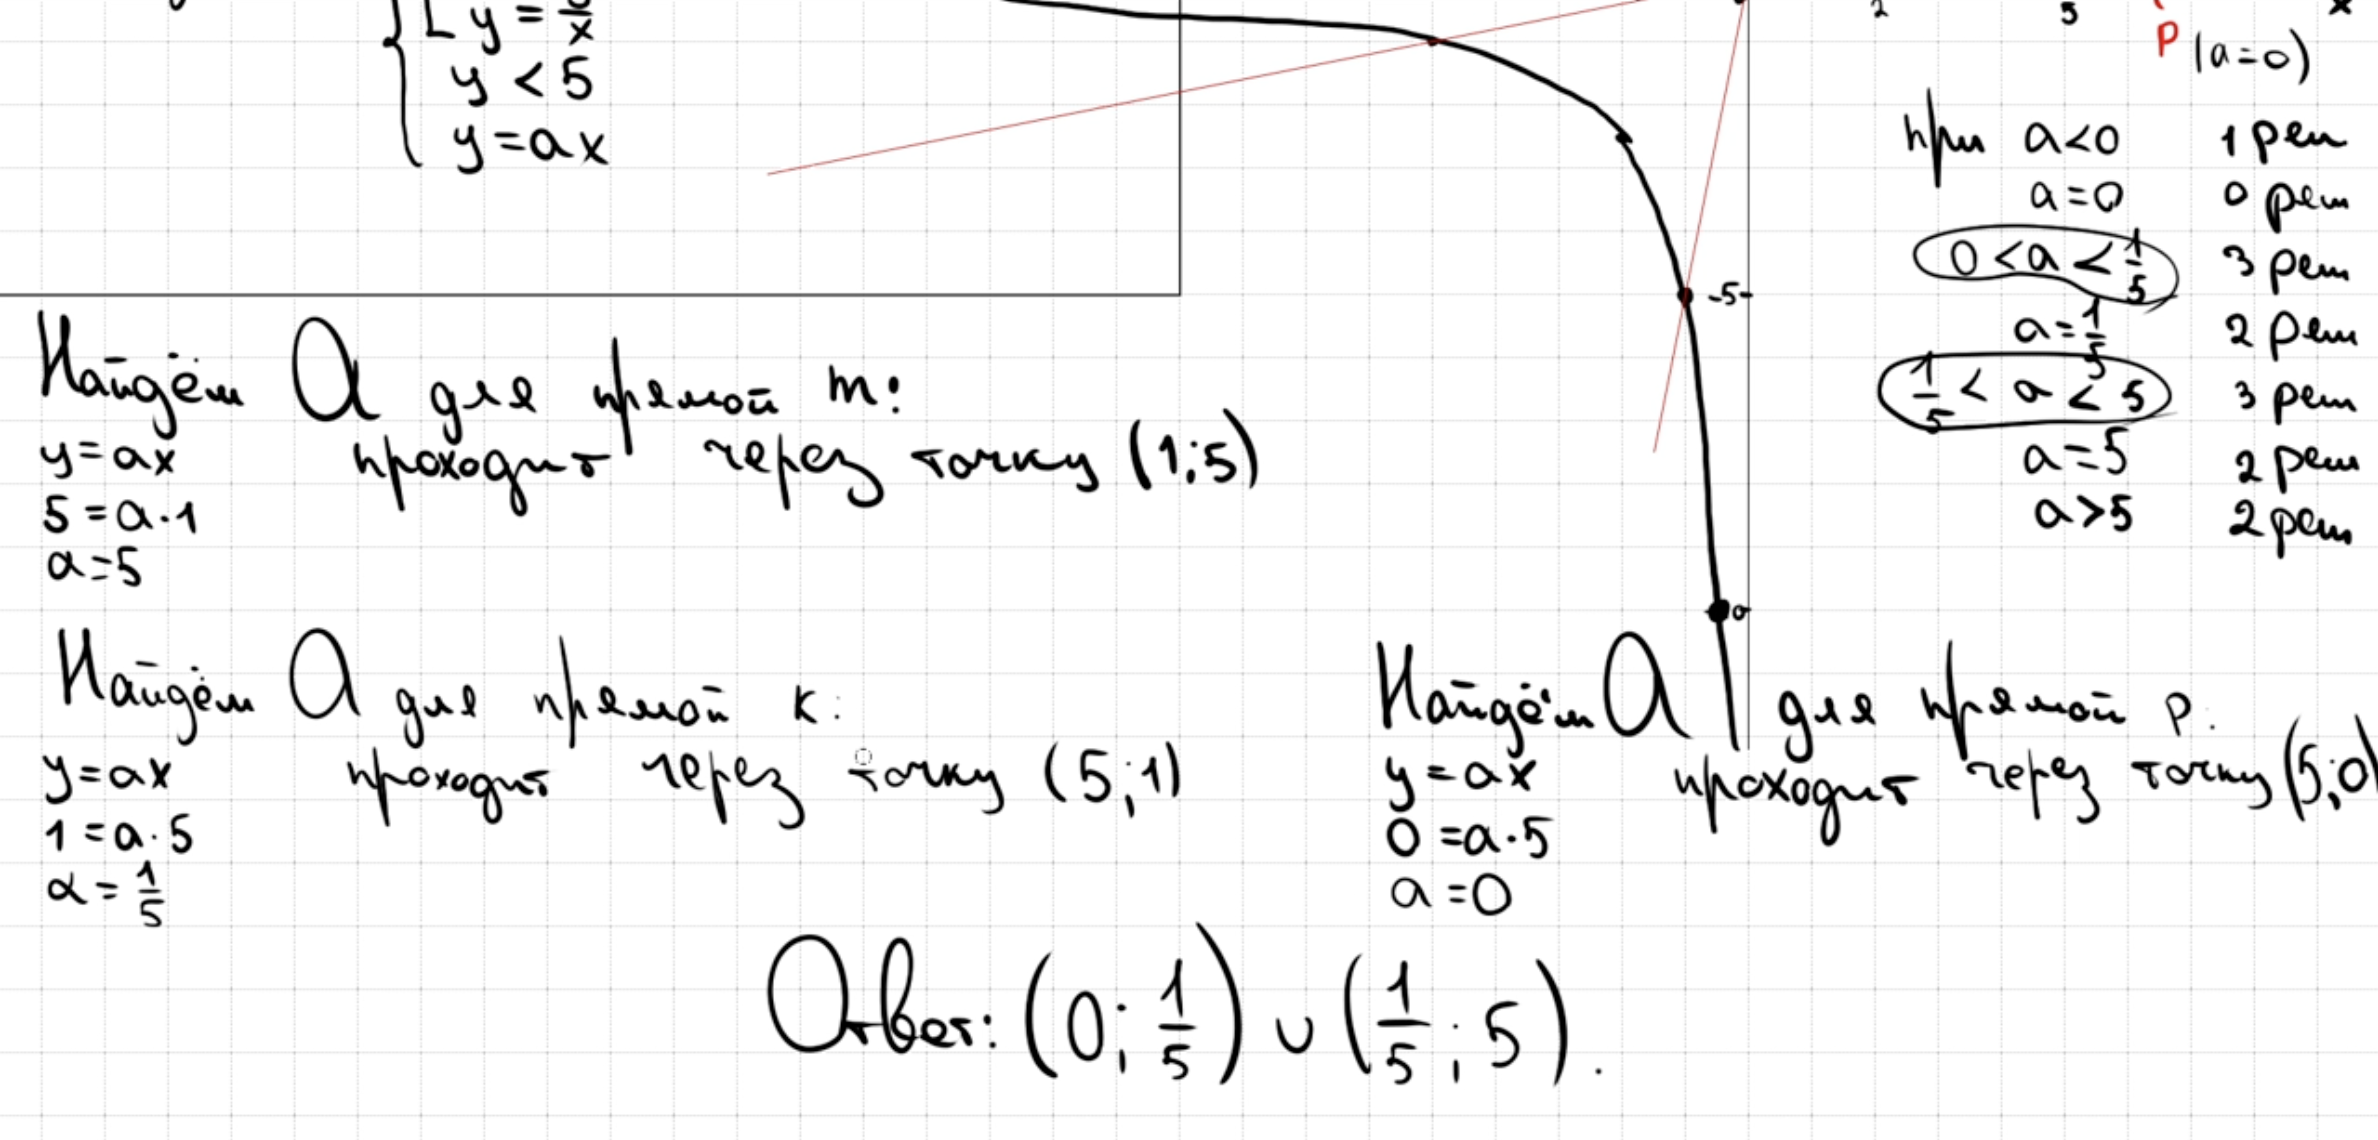 y = 5/x
y < 5
y = ax
2 5 x
P (a=0)
при a<0 1 реш
a=0 0 реш
0 < a < 1/5 3 реш
a=1/5 2 реш
1/5 < a < 5 3 реш
a=5 2 реш
a>5 2 реш
-5
Найдём a для прямой m:
y=ax проходит через точку (1;5)
5=a·1
a=5
Найдём a для прямой k:
y=ax проходит через точку (5;1)
1=a·5
a=1/5
Найдём a для прямой p.
y=ax проходит через точку (5;0)
0=a·5
a=0
Ответ: (0; 1/5) ∪ (1/5; 5).